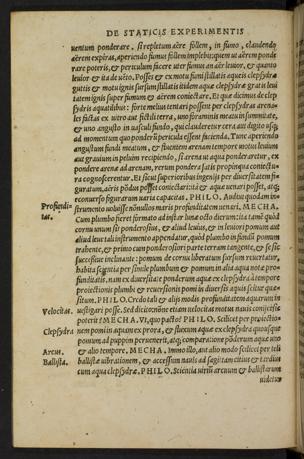 DE STATICIS EXPERIMENTIS
uentum ponderare, si repletum aëre follem, in fumo, claudendo
aërem expiras, aperiendo fumus follem implebit: quem ut aërem ponde
rare poteris, & periculum facere uter fumus an aër leuior, & quanto
leuior & ita de uẽto. Posses & ex motu fumi stillatis aqueis clepsydræ
guttis & motu ignis sursum stillatis itidem aquæ clepsydræ gratis leui
tatem ignis super fumum & aërem coniectare. Et quæ dicimus de clep
sydris aquatilibus: forte melius tentari possent per clepsydras arena-
les factas ex uitro aut fictili terra, uno foraminis meatu in summitate,
& uno angusto in uasculi fundo, qui clauderetur cera aut digito usque
ad momentum quo ponderū pericula essent facienda. Tunc aperiendo
angustum fundi meatum, & fluentem arenam tempore motus leuium
aut grauium in peluim recipiendo, si arena ut aqua ponderaretur, ex
pondere arenæ ad arenam, rerum pondera satis propinqua coniectu-
ra cognoscerentur. Et sic aui superioribus ingenijs per diuersitatem fi-
guratum, aëris põdus posset coniectari: ita & aquæ uenari posset, atque
reconuerso figurarum uaria capacitas. PHILO. Audiui quodam in-
Profundi- strumento uoluisse nonnullos maris profunditatem uenari. MECHA.
tas. Cum plumbo fieret formato ad instar lunæ octo dierum: ita tamẽ quòd
cornu unum sit ponderosius, & aliud leuius, & in leuiori pomum aut
aliud leue tali instrumento appendatur, quòd plumbo in fundū pomum
trahente, & primo cum ponderosiori parte terram tangente, & sic se
successiue inclinante: pomum de cornu liberatum sursum reuertatur,
habita scientia per simile plumbum & pomum in alia aqua nota pro-
funditatis. nam ex diuersitate ponderum aquæ ex clepsydra à tempore
proiectionis plumbi & reuersionis pomi in diuersis aquis scitur quæ-
situm. PHILO. Credo tali & alijs modis profunditatem aquarum in
Velocitas. uestigari posse. Sed dicitò nónne etiam uelocitas motus nauis conijci
poterit? MECHA. Vt, quo pacto? PHILO. Scilicet per proiectio-
Clepsydræ nem pomi in aquam ex prora, & fluxum aquæ ex clepsydra quousque
pomum ad puppim peruenerit, atque comparatione põderum aquæ uno
Arcus. & alio tempore. MECHA. Immo illo, aut alio modo scilicet per teli
Ballista. ballistæ uibrationem, & accessum nauis ad sagittam citius & tardius
cum aqua clepsydræ. PHILO. Scientia uirib. arcuum & ballistarum
uidetur